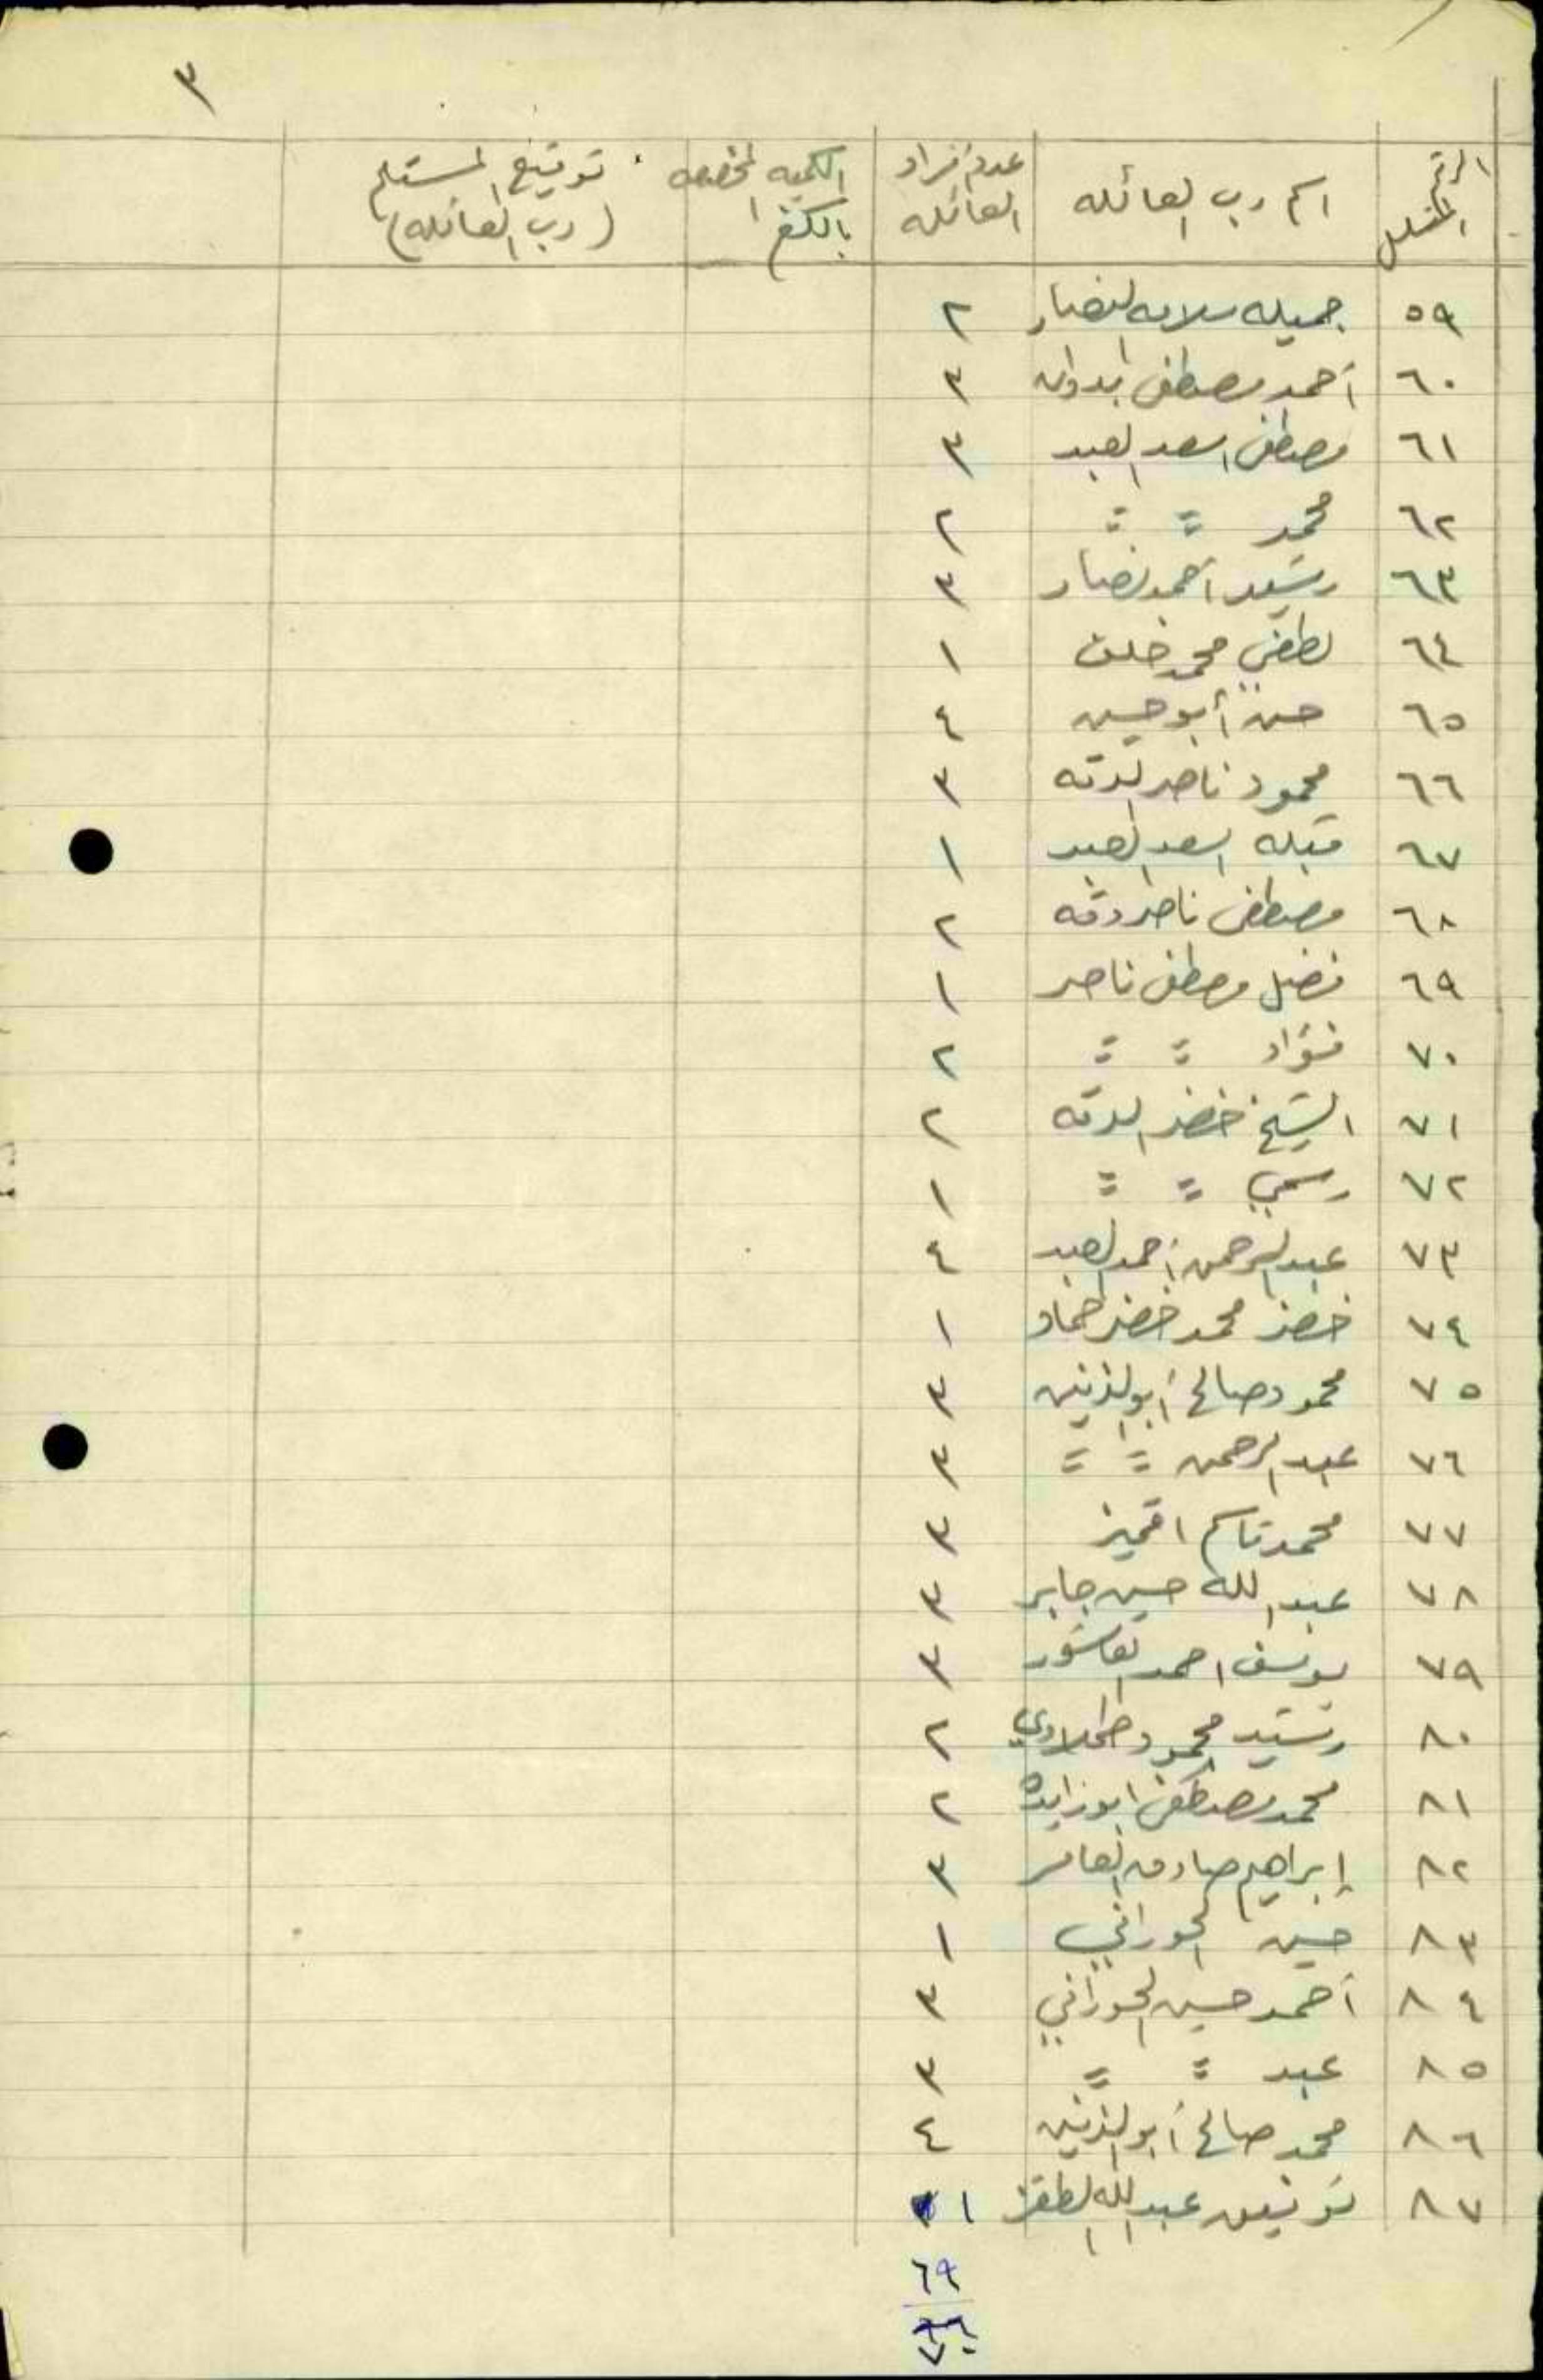 ٣
الرقم المتسلسل اسم رب العائله عدد أفراد العائله الكميه المخصصه بالكغم توقيع المستلم (رب العائله)
٥٩ جميله سلامه النصار ٢
٦٠ أحمد مصطفى ٣
٦١ مصطفى اسعد العبد ٣
٦٢ محمد = = ٢
٦٣ رشيد أحمد نصار ٣
٦٤ لطفي محمد خلف ١
٦٥ حسن أبو حسين ٤
٦٦ محمود ناصر الدقه ٣
٦٧ اسعد العبد ١
٦٨ مصطفى ناصر دقه ٢
٦٩ فضل مصطفى ناصر ١
٧٠ فؤاد = = ٢
٧١ الشيخ خضر الدقه ٢
٧٢ رسمي = = ١
٧٣ عبد الرحمن أحمد العبد ٤
٧٤ خضر محمد خضر حماد ١
٧٥ محمود صالح أبو الزين ٣
٧٦ عبد الرحمن = = ٣
٧٧ محمد قاسم ٣
٧٨ عبد الله حسين جابر ٣
٧٩ يوسف احمد العاشور ٣
٨٠ رشيد محمود ٢
٨١ محمد مصطفى ابو زايده ٢
٨٢ إبراهيم صادق العامر ٣
٨٣ حسين الحوراني ١
٨٤ أحمد حسين الحوراني ٣
٨٥ عبد = = ٣
٨٦ محمد صالح أبو الزين ٤
٨٧ توفيق عبد الله ١
٦٩
٧٠